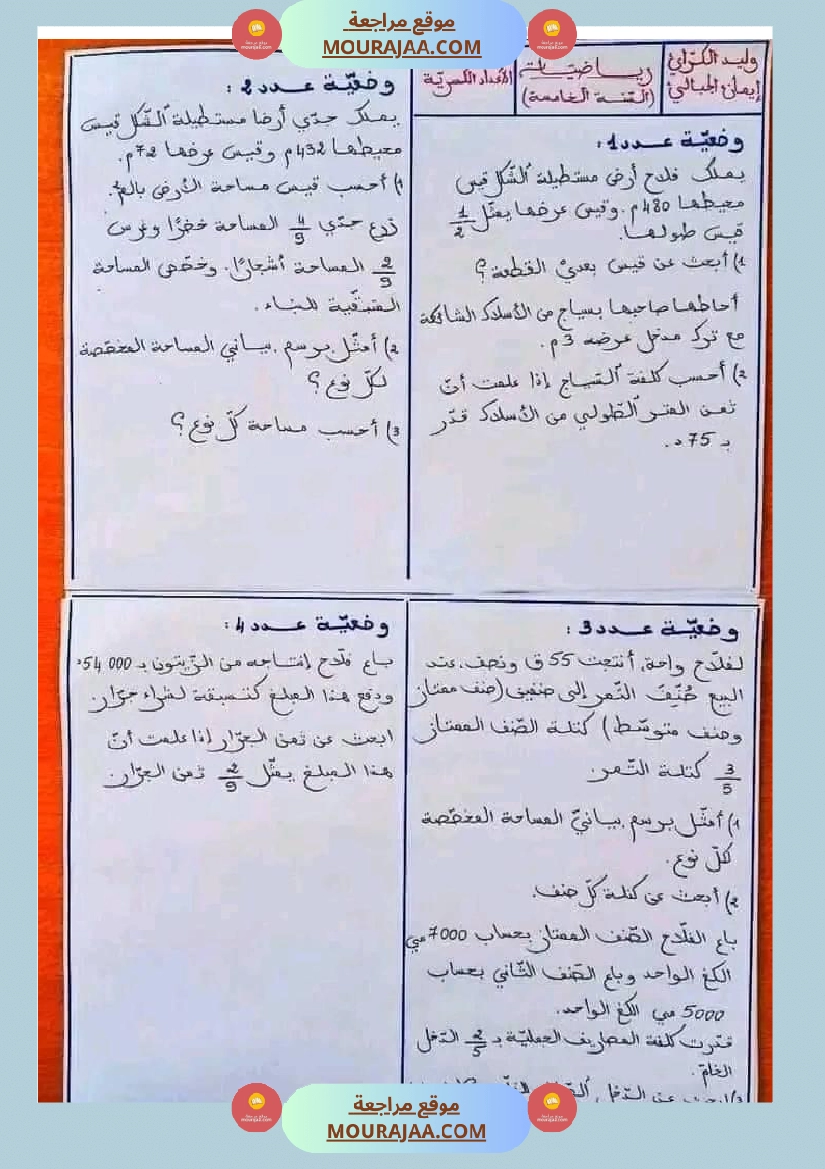 موقع مراجعة
MOURAJAA.COM
وليد الكراي
إيمان الجبالي
رياضيات
(السنة الخامسة)
الأعداد الكسريّة
وضعيّة عدد 1:
يملك فلاح أرض مستطيلة الشّكل قيس
محيطها 480 م. وقيس عرضها يمثّل 1/2
قيس طولها.
1) أبحث عن قيس بعديْ القطعة؟
أحاطها صاحبها بسياج من الأسلاك الشائكة
مع ترك مدخل عرضه 3 م.
2) أحسب كلفة السّياج إذا علمت أنّ
ثمن المتر الطّولي من الأسلاك قدّر
بـ 75 د.
وضعيّة عدد 2:
يملك جدّي أرضا مستطيلة الشّكل قيس
محيطها 432 م وقيس عرضها 72 م.
1) أحسب قيس مساحة الأرض بالم².
زرع جدّي 4/9 المساحة خضرًا وغرس
2/9 المساحة أشجارًا. وخصّص المساحة
المتبقّية للبناء.
2) أمثّل برسم بياني المساحة المخصّصة
لكلّ نوع؟
3) أحسب مساحة كلّ نوع؟
وضعيّة عدد 3:
لفلّاح واحة، أنتجت 55 ق ونصف. عند
البيع صُنِّفَ التّمر إلى صنفين (صنف ممتاز
وصنف متوسّط) كتلة الصّنف الممتاز
3/5 كتلة التّمر.
1) أمثّل برسم بيانيّ المساحة المخصّصة
لكلّ نوع.
2) أبحث عن كتلة كلّ صنف.
باع الفلّاح الصّنف الممتاز بحساب 7000 مي
الكغ الواحد وباع الصّنف الثّاني بحساب
5000 مي الكغ الواحد.
قدّرت كلفة المصاريف الجمليّة بـ 2/5 الدّخل
الخام.
وضعيّة عدد 4:
باع فلّاح إنتاجه من الزّيتون بـ 54000 د
ودفع هذا المبلغ كتسبقة لشراء جرّار.
ابحث عن ثمن الجرّار إذا علمت أنّ
هذا المبلغ يمثّل 2/9 ثمن الجرّار.
موقع مراجعة
MOURAJAA.COM